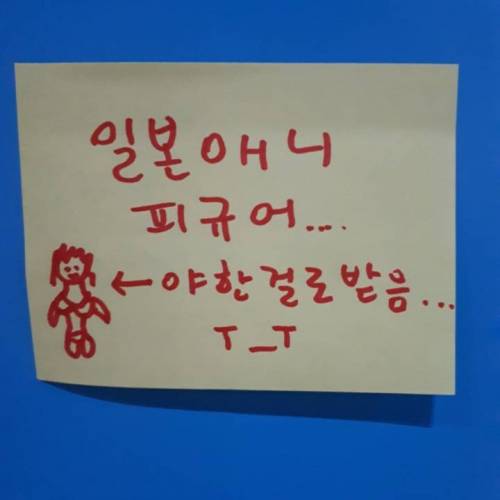 일본애니
피규어....
←야한걸로받음...
T_T